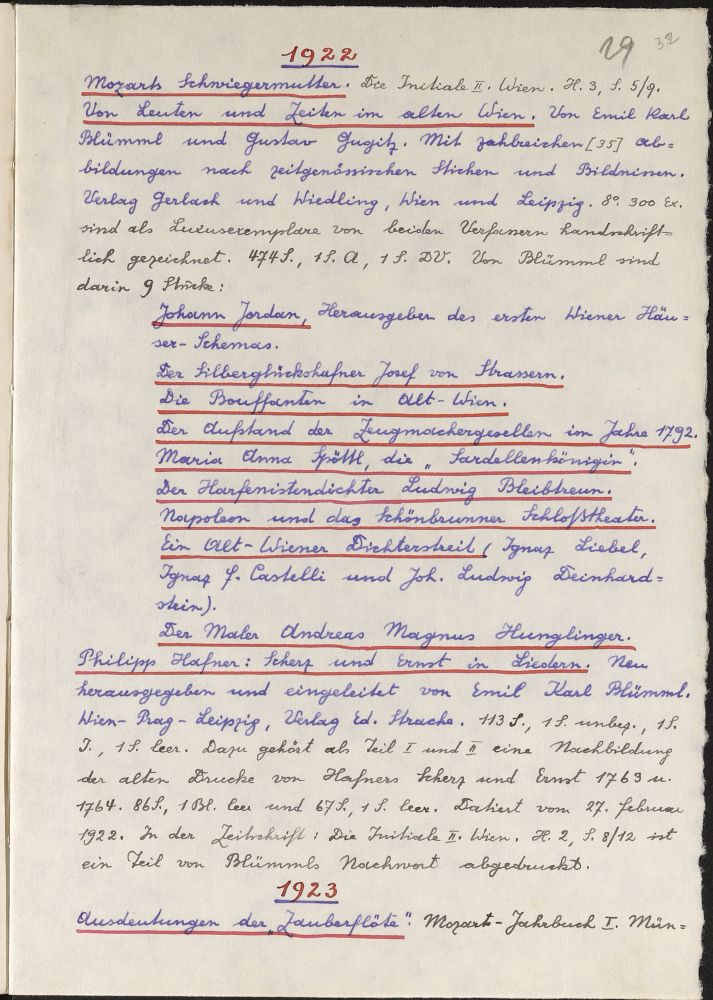 29 32
1922
Mozarts Schwiegermutter. Die Initiale II. Wien. H. 3, S. 5/9.
Von Leuten und Zeiten im alten Wien. Von Emil Karl
Blümml und Gustav Gugitz. Mit zahlreichen [35] Ab=
bildungen nach zeitgenössischen Stichen und Bildnissen.
Verlag Gerlach und Wiedling, Wien und Leipzig. 8º. 300 Ex.
sind als Luxusexemplare von beiden Verfassern handschrift=
lich gezeichnet. 474 S., 1 S. A, 1 S. DV. Von Blümml sind
darin 9 Stücke:
Johann Jordan, Herausgeber des ersten Wiener Häu=
ser-Schemas.
Der Silberglückshafner Josef von Strassern.
Die Bouffanten in Alt-Wien.
Der Aufstand der Zeugmachergesellen im Jahre 1792.
Maria Anna Spöttl, die „Sardellenkönigin".
Der Harfenistendichter Ludwig Bleibtreun.
Napoleon und das Schönbrunner Schloßtheater.
Ein Alt-Wiener Dichterstreit (Ignaz Liebel,
Ignaz F. Castelli und Joh. Ludwig Deinhard=
stein).
Der Maler Andreas Magnus Hunglinger.
Philipp Hafner: Scherz und Ernst in Liedern. Neu
herausgegeben und eingeleitet von Emil Karl Blümml.
Wien-Prag-Leipzig, Verlag Ed. Strache. 113 S., 1 S. unbez., 1 S.
I., 1 S. leer. Dazu gehört als Teil I und II eine Nachbildung
der alten Drucke von Hafners Scherz und Ernst 1763 u.
1764. 86 S., 1 Bl. leer und 67 S., 1 S. leer. Datiert vom 27. Februar
1922. In der Zeitschrift: Die Initiale II. Wien. H. 2, S. 8/12 ist
ein Teil von Blümmls Nachwort abgedruckt.
1923
Ausdeutungen der „Zauberflöte". Mozart-Jahrbuch I. Mün=